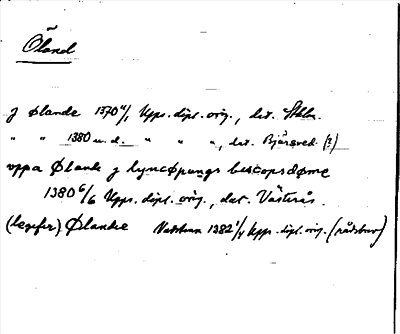 Öland
J Ølande 1370 11/1 Upps. dipl. orig., dat. Sthlm.
" " 1380 u. d. " " ", dat. Bjärsved (?)
vppa Ølande j lyncøpungs biscopsdøme
1380 6/6 Upps. dipl. orig., dat. Västerås.
(legifer) Ølandie Vadstena 1382 1/4 Upps. dipl. orig. (rådsbrev)